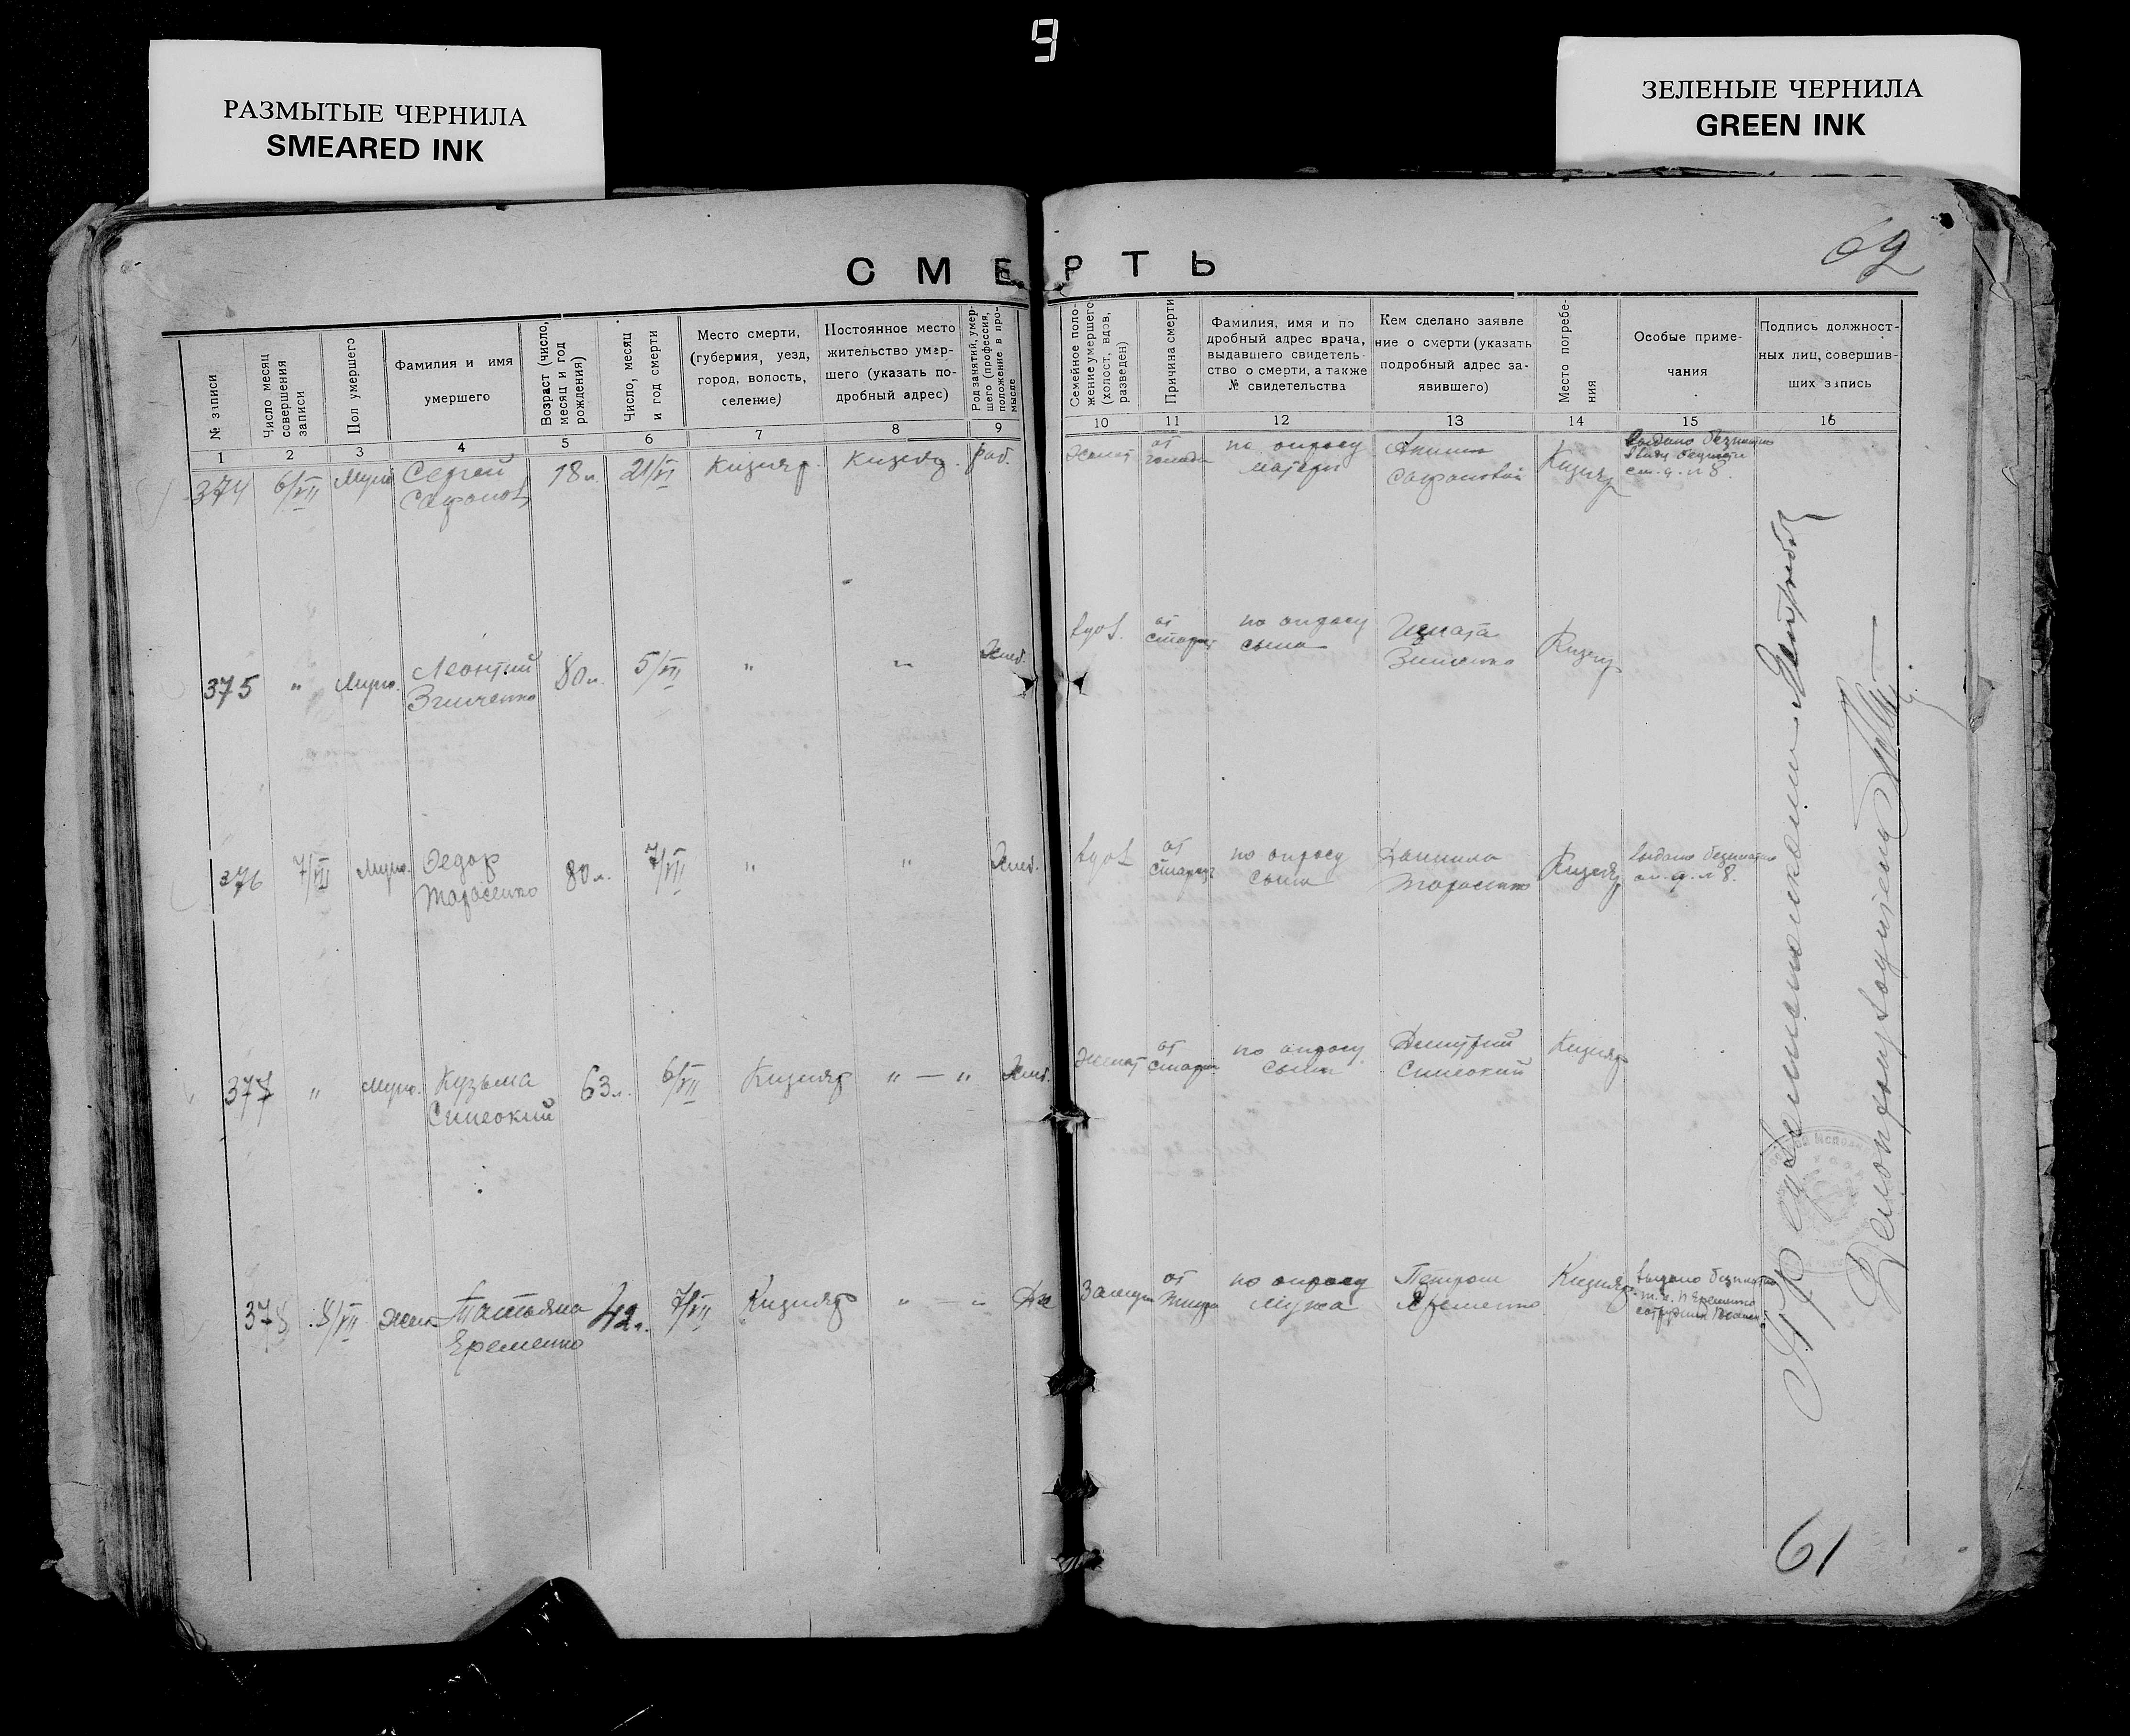 9
РАЗМЫТЫЕ ЧЕРНИЛА
SMEARED INK
ЗЕЛЕНЫЕ ЧЕРНИЛА
GREEN INK
62
СМЕРТЬ
№ записи
Число месяц совершения записи
Пол умершего
Фамилия и имя
умершего
Возраст (число, месяц и год рождения)
Число, месяц и год смерти
Место смерти,
(губерния, уезд,
город, волость,
селение)
Постоянное место
жительство умер-
шего (указать по-
дробный адрес)
Род занятий, умер-
шего (профессия,
положение в про-
мысле
Семейное поло-
жение умершего
(холост, вдов,
разведен)
Причина смерти
Фамилия, имя и по
дробный адрес врача,
выдавшего свидетель-
ство о смерти, а также
№ свидетельства
Кем сделано заявле
ние о смерти (указать
подробный адрес за-
явившего)
Место погребе-
ния
Особые приме-
чания
Подпись должност-
ных лиц, совершив-
ших запись
1 2 3 4 5 6 7 8 9 10 11 12 13 14 15 16
374 6/VII Муж Сергей 18 л. 21/VI Кизияр Кизияр раб. Женат от голода по опросу Кизияр выдано безплатно
Сафонов матери Сафоновой ст. 9. п 8.
375 " Муж. Леонтий 80 л. 5/VII " " вдов. от старос по опросу Игната Кизияр
Зинченко сына Зинченко
376 7/VII Муж. Федор 80 л. 7/VII " " вдов от старос по опросу Данила Кизияр выдано безплатно
Тарасенко сына Тарасенко ст. 9. п 8.
377 " Муж. Кузьма 63 л. 6/VII Кизияр " — " Женат от старос по опросу Дмитрий Кизияр
Синеокий сына Синеокий
378 8/VII Жен Татьяна 42 л. 7/VII Кизияр " — " Замуж от тифа по опросу Петром Кизияр выдано безплатно
Еременко мужа Еременко т. к. П Еременко
Делопроизводитель
61